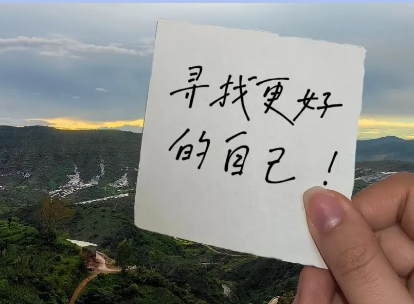 寻找更好
的自己！